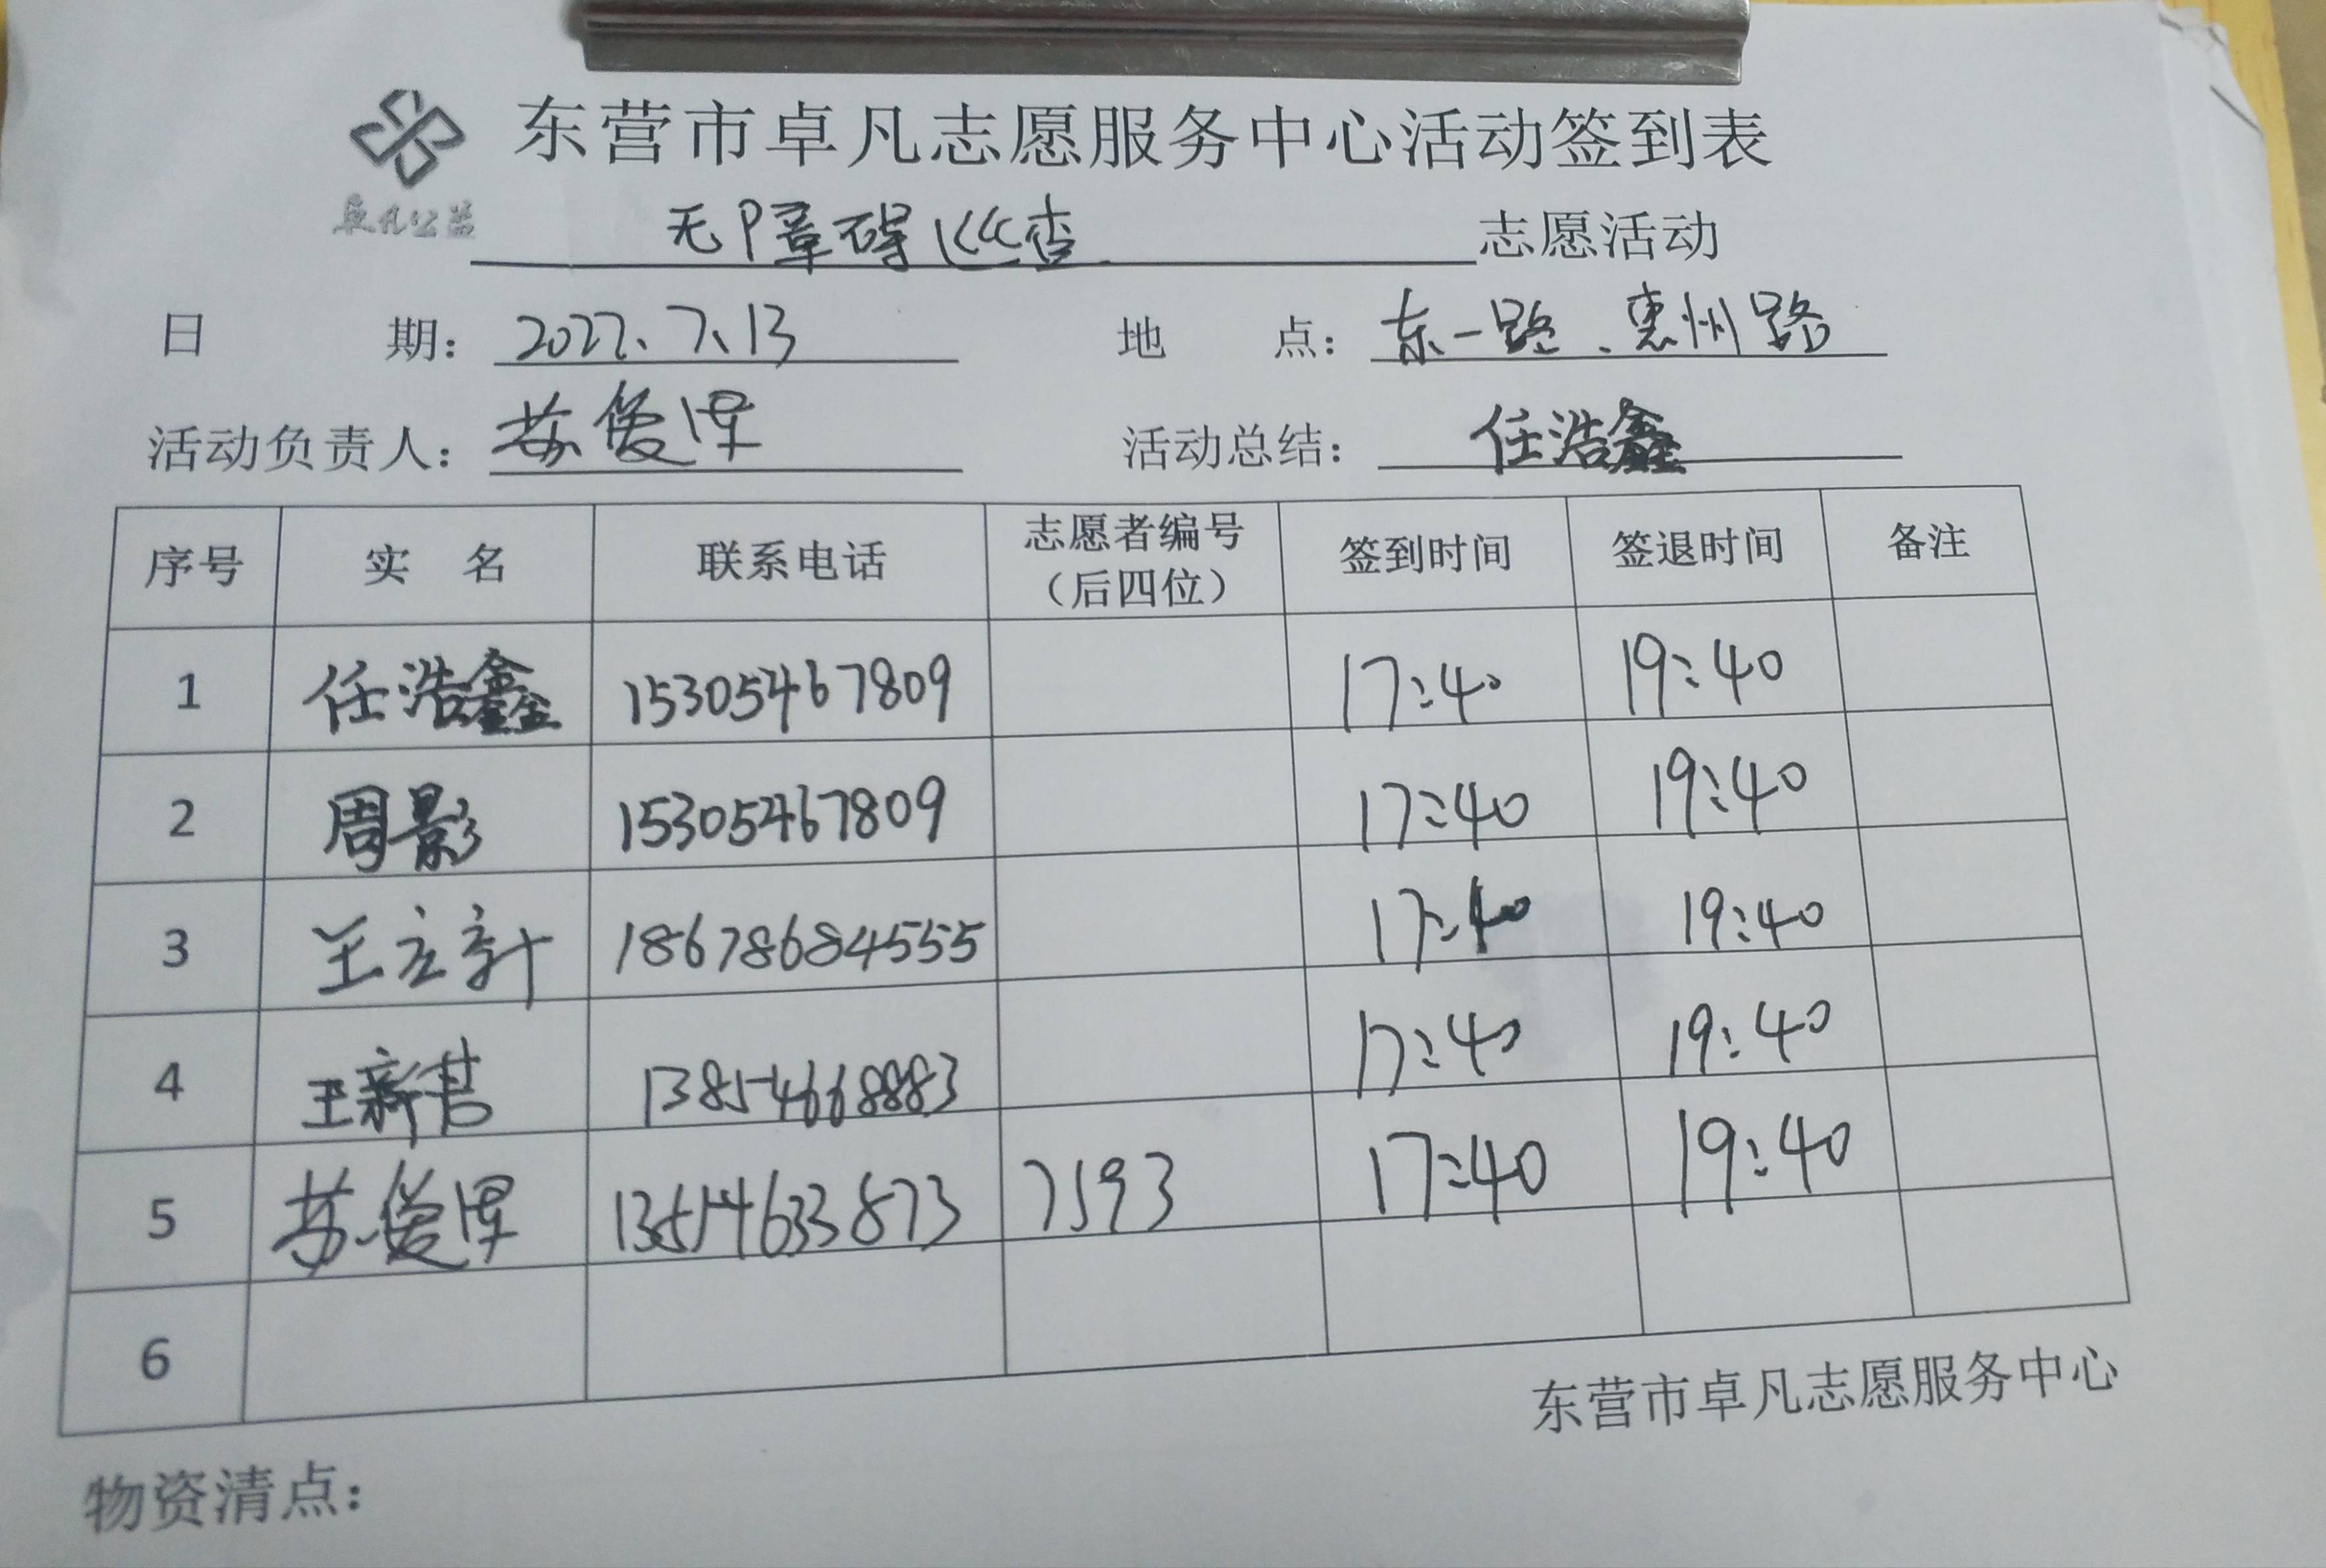 东营市卓凡志愿服务中心活动签到表
卓凡公益
无障碍巡查 志愿活动
日期: 2022、7、13 地点: 东一路、惠州路
活动负责人: 苏俊泽 活动总结: 任浩鑫
序号 实 名 联系电话 志愿者编号（后四位） 签到时间 签退时间 备注
1 任浩鑫 15305467809 17:40 19:40
2 周影 15305467809 17:40 19:40
3 王立新 18678684555 17:40 19:40
4 王新营 13854668883 17:40 19:40
5 苏俊泽 13514633873 7593 17:40 19:40
6
东营市卓凡志愿服务中心
物资清点: